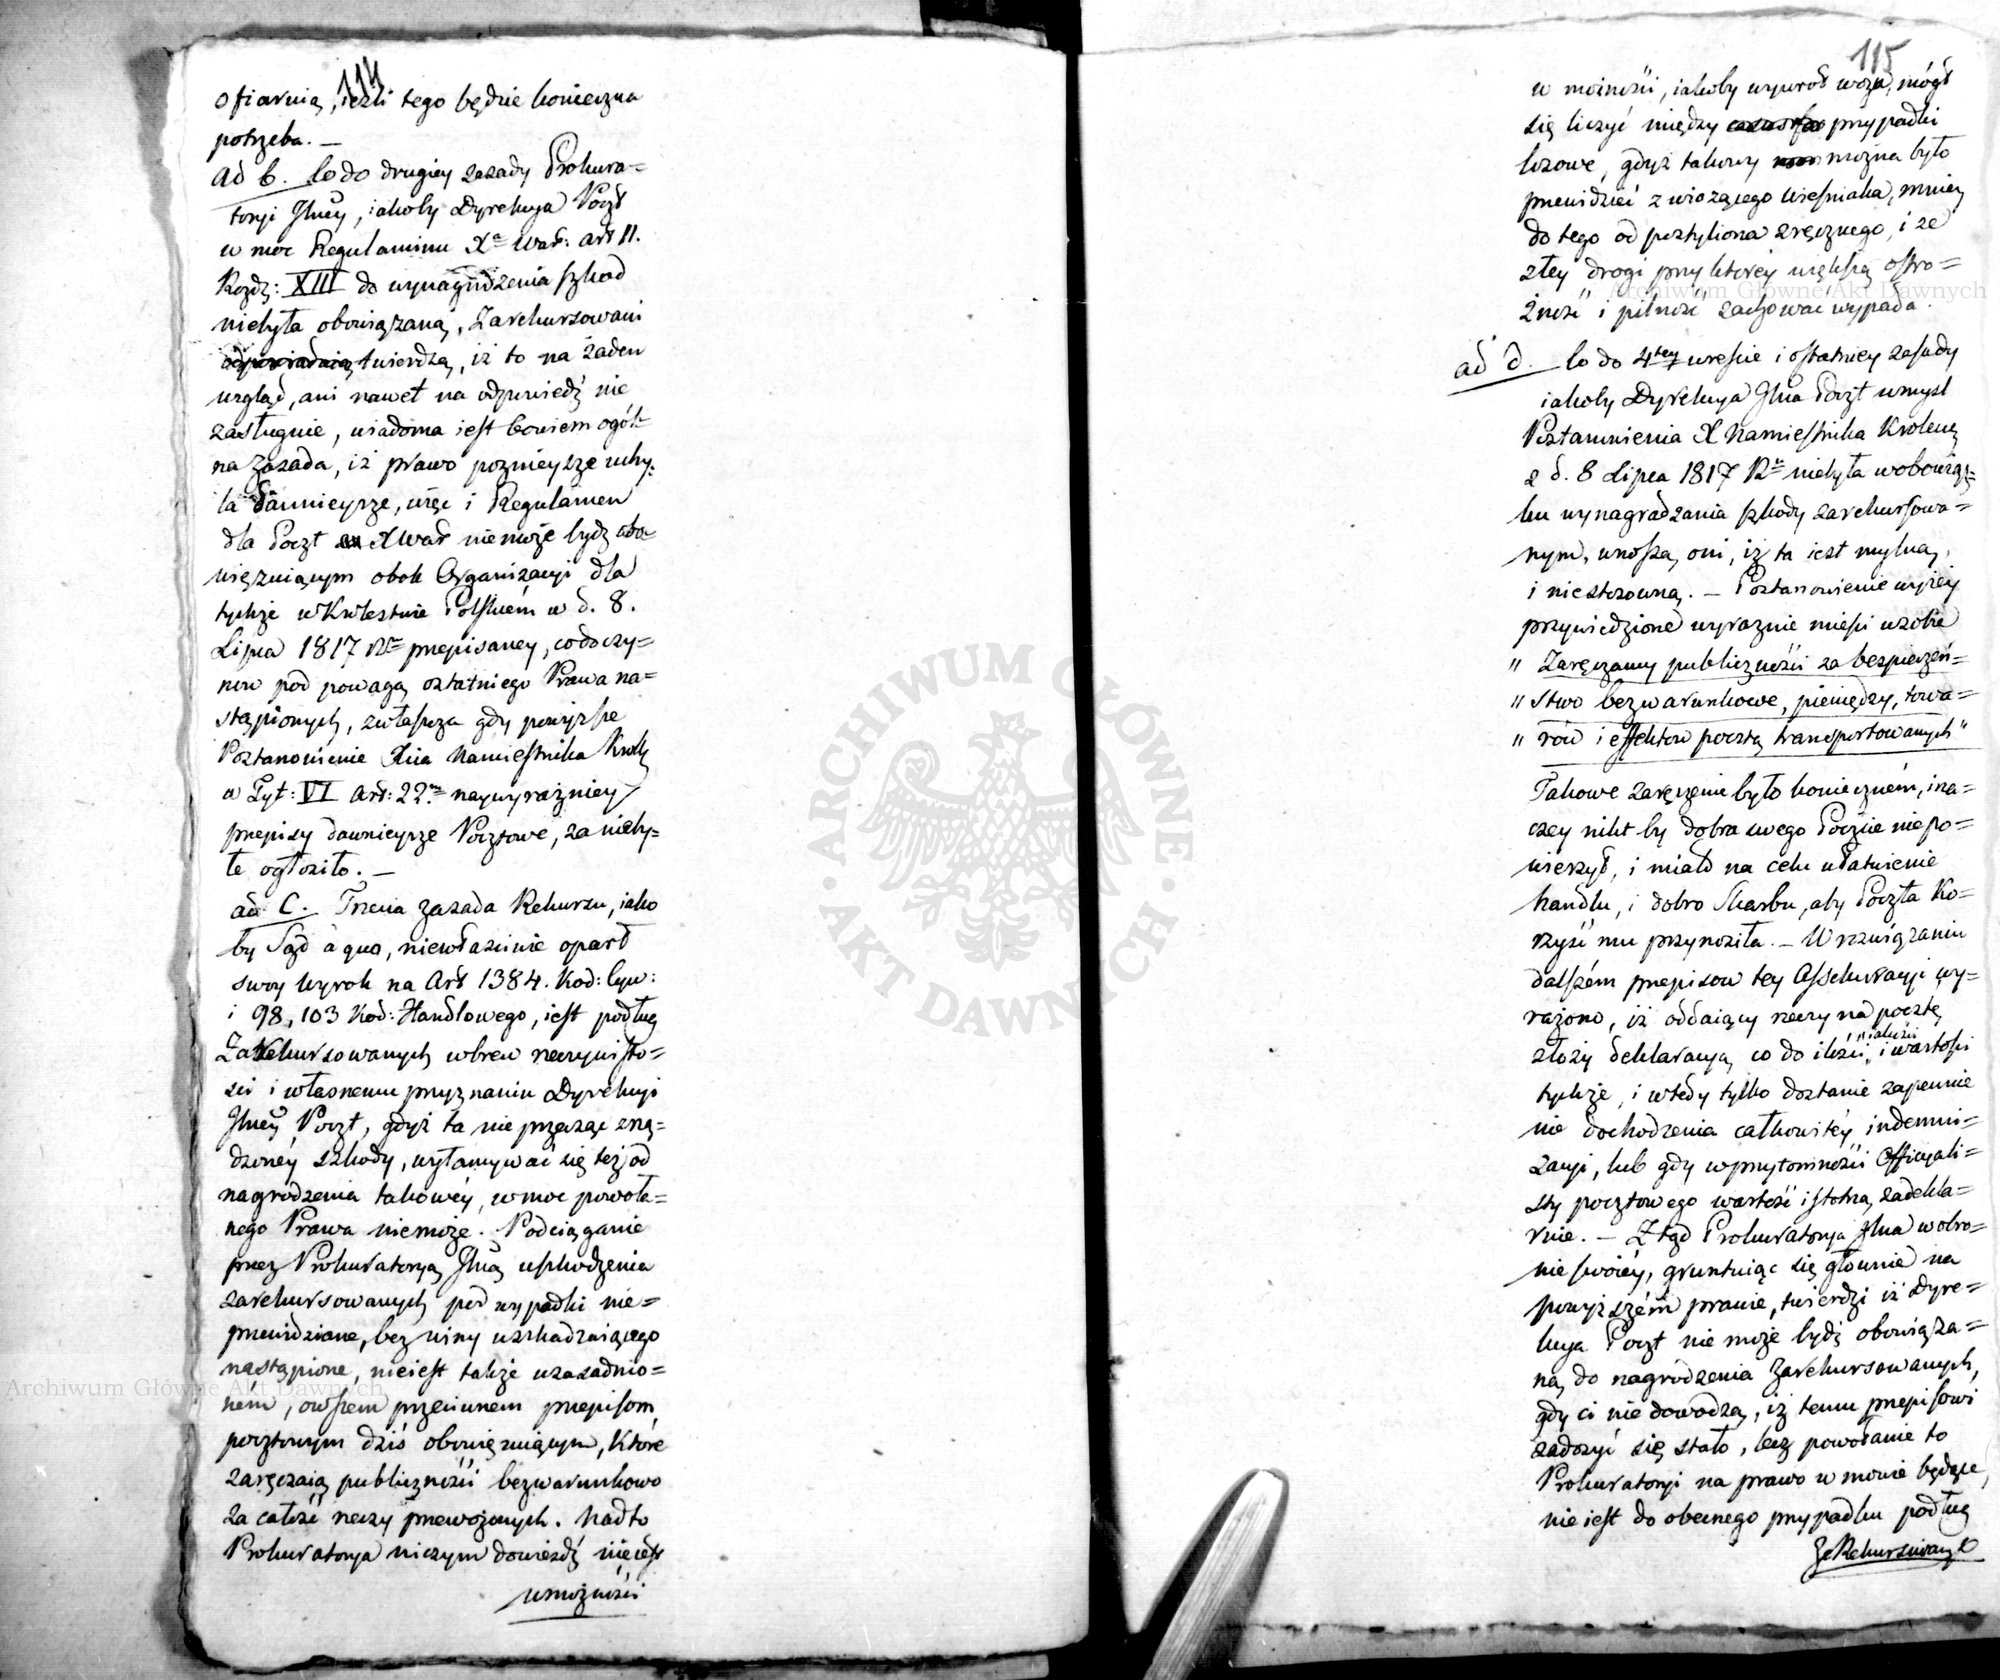 114
ofiaruią, ieżli tego będzie konieczna
potrzeba. —
ad b. Co do drugiey zasady Prokura=
toryi Jlney, iakoby Dyrekcya Poczt
w moc Regulaminu Xa War: art II.
Rozdz: XIII do wynagrodzenia szkod
niebyła obowiązaną, Zarekursowani
twierdzą, iż to na żaden
wzgląd, ani nawet na odpowiedź nie
zasługuie, wiadoma iest bowiem ogól=
na zasada, iż prawo poźnieysze uchy=
la dawnieysze, więc i Regulamen
dla Poczt XWar niemoże bydź obo
wiązuiącym obok Organizacyi dla
tychże w Krolestwie Polskiém w d. 8.
Lipca 1817 Rr przepisaney, co do czy=
now pod powagą ostatniego Prawa na=
stąpionych, zwłaszcza gdy powyższe
Postanowienie Xcia Namiestnika Krolk
w Tyt: VI Art: 22m naywyraźniey
przepisy dawnieysze Pocztowe, za nieby=
łe ogłosiło. —
ad C. Trzecia zasada Rekursu, iako
by Sąd à quo, niewłaściwie oparł
swoy wyrok na Art 1384. Kod: Cyw:
i 98, 103 Kod: Handlowego, iest podług
Zarekursowanych wbrew rzeczywisto=
ści i własnemu przyznaniu Dyrekcyi
Jlney Poczt, gdyż ta nie przecząc zrzą=
dzonéy szkody, wyłamywać się też od
nagrodzenia takowéy, w moc powoła=
nego Prawa niemoże. Podciąganie
przez Prokuratoryą Jlną uszkodzenia
zarekursowanych pod wypadki nie=
przewidziane, bez winy uszkadzaiącego
nastąpione, nieiest także uzasadnio=
ném, owszem przeciwnem przepisom
pocztowym dziś obowięzuiącym, które
zaręczaią publiczności bezwarunkowo
za całość rzeczy przewożonych. Nadto
Prokuratorya niczym dowieśdź nie iest
w możności
115
w możności, iakoby wywrót woza, mógł
się liczyć między przypadki
losowe, gdyż takowy można było
przewidzieć z wiozącego wieśniaka, mniey
do tego od pocztyliona zręcznego, i ze
złey drogi przy ktorey większą ostro=
żność i pilność zachować wypada.
ad d. Co do 4tey wreście i ostatniey zasady
iakoby Dyrekcya Jlna Poczt w myśl
Postanowienia X Namiestnika Krolewg
z d. 8 Lipca 1817 Rr niebyła w obowiąz=
ku wynagradzania szkody zarekursowa=
nym, wnoszą oni, iż ta iest mylną,
i niestosowną. — Postanowienie wyżey
przywiedzione wyraźnie mieści w sobie
" Zaręczamy publiczności za bezpieczeń=
" stwo bezwarunkowe, pieniędzy, towa=
" rów i effektow pocztą transportowanych"
Takowe zaręczenie było konieczném, ina=
czey nikt by dobra swego Poczcie niepo=
wierzył, i miało na celu ułatwienie
handlu, i dobro Skarbu, aby Poczta Ko=
rzyść mu przynosiła. — W rozwiązaniu
dalszém przepisow tey Assekuracyi wy=
rażono, iż oddaiący rzeczy na pocztę,
złoży deklaracyą co do ilości, iakości i wartości
tychże, i wtedy tylko dostanie zapewnie
nie dochodzenia całkowitéy indemni=
zacyi, lub gdy w przytomności Officyali=
sty pocztowego wartość istotną zadekla=
ruie. — Ztąd Prokuratorya Jlna w obro=
nie swoiéy, gruntuiąc się głównie na
powyższém prawie, twierdzi iż Dyre=
kcya Poczt nie może bydź obowiąza=
ną do nagrodzenia Zarekursowanych,
gdy ci nie dowodzą, iż temu przepisowi
zadosyć się stało, lecz powołanie to
Prokuratoryi na prawo w mowie będące,
nie iest do obecnego przypadku podług
ZaRekursowanych
Archiwum Główne Akt Dawnych
Archiwum Główne Akt Dawnych
ARCHIWUM GŁÓWNE · AKT DAWNYCH ·